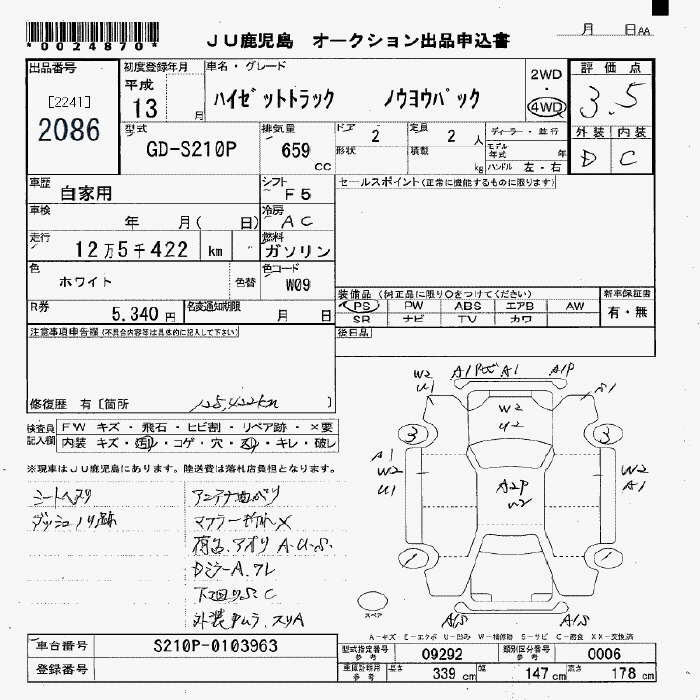 *0024870*
JU鹿児島 オークション出品申込書
月 日AA
出品番号 初度登録年月 車名・グレード 2WD 評価点
[2241] 平成 4WD 3.5
2086 13 月 ハイゼットトラック ノウヨウパック
外装 内装
型式 排気量 ドア 2 定員 2 人 ディーラー・並行
GD-S210P 659 CC 形状 積載 kg モデル年式 年 D C
ハンドル 左・右
車歴 シフト セールスポイント(正常に機能するものに限ります)
自家用 F5
車検 年 月( 日) 冷房 AC
走行 12万5千422 km 燃料 ガソリン
色 ホワイト 色替 色コード W09
装備品(純正品に限り○をつけてください) 新車保証書
R券 5,340円 名変通知期限 月 日 PS PW ABS エアB AW 有・無
SR ナビ TV カワ
注意事項申告欄(不具合内容等は具体的に記入して下さい) 後日品
修復歴 有[箇所 125,422km ]
W2 U1 A1 A1 A1P S1
W2 U2
3 3
A1 W2 U1 A2P U2 W2 A1
1 1
スペア
A/S A/S
検査員記入欄 FW キズ・飛石・ヒビ割・リペア跡・×要
内装 キズ・汚れ・コゲ・穴・スレ・キレ・破レ
※現車はJU鹿児島にあります。陸送費は落札店負担となります。
シートヘタリ アンテナ曲がり
ダッシュノリ跡 マフラー
アオリ A.U.S.
DミラーA.
下回りS C
外装 ムラ、スリA
A-キズ E-エクボ U-凹み W-補修跡 S-サビ C-腐食 XX-交換済
車台番号 S210P-0103963 型式指定番号 参考 09292 類別区分番号 参考 0006
登録番号 車庫証明用 参考 長さ 339 cm 幅 147 cm 高さ 178 cm